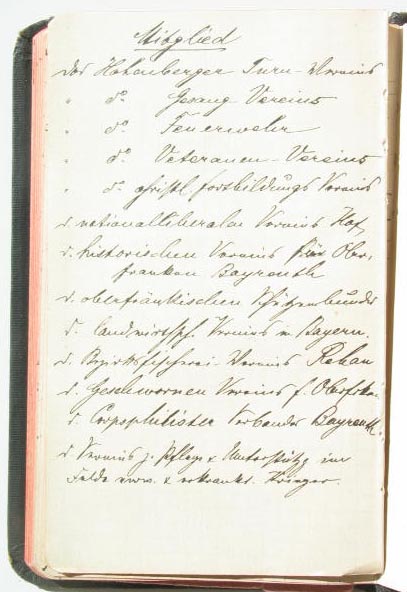 Mitglied
des Hohenberger Turn-Vereins
" do. Gesang-Vereins
" do. Feuerwehr
" do. Veteranen-Vereins
" do. christl. Fortbildungs Vereins
d. nationalliberalen Vereins Hof,
d. historischen Vereins für Ober,
franken Bayreuth
d. oberfränkischen Schützenbundes
d. landwirthsch. Vereins in Bayern.
d. Bezirksfischerei-Vereins Rehau
d. Geschworenen Vereins f. Oberfrken.
d. Corpsphilister Verbandes Bayreuth.
d Vereins z. Pflege & Unterstützg im
Felde verw. & erkrankt. Krieger.